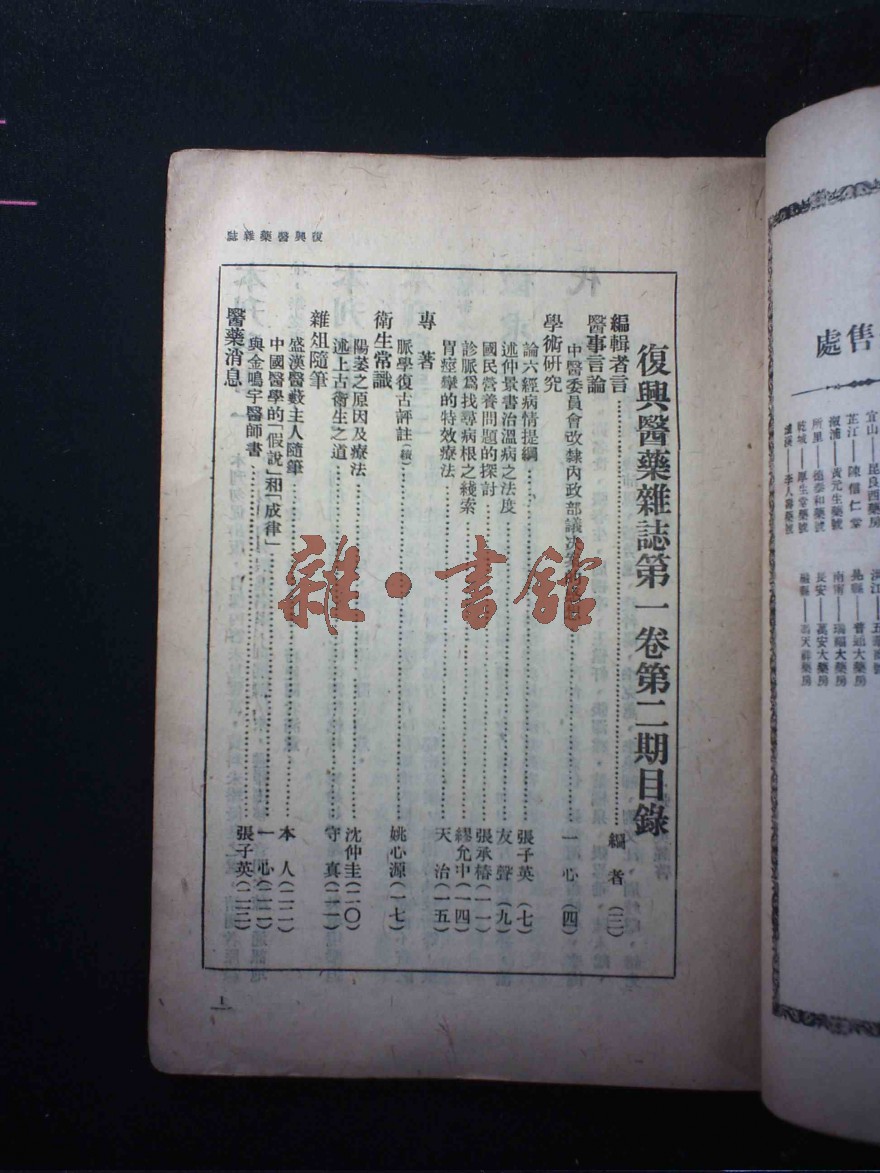 售處
宜山——昆良西藥房
芷江——陳信仁堂
溆浦——黃元生藥號
所里——德泰和藥號
乾城——厚生堂藥號
李人壽藥號
晃縣——普通大藥房
南甯——瑞福大藥房
長安——萬安大藥房
復興醫藥雜誌
復興醫藥雜誌第一卷第二期目錄
編輯者言……編者(三)
醫事言論
中醫委員會改隸內政部議決案……一心(四)
學術研究
論六經病情提綱……張子英(七)
述仲景書治溫病之法度……友聲(九)
國民營養問題的探討……張承椿(一一)
診脈爲找尋病根之綫索……繆允中(一四)
胃痙攣的特效療法……天治(一五)
專著
脈學復古評註(續)……姚心源(一七)
衛生常識
陽萎之原因及療法……沈仲圭(二〇)
述上古衛生之道……守真(二一)
雜俎隨筆
盛漢醫藪主人隨筆……本人(二二)
中國醫學的「假說」和「成律」……一心(二二)
與金鳴宇醫師書……張子英(二三)
醫藥消息
1
雜·書館